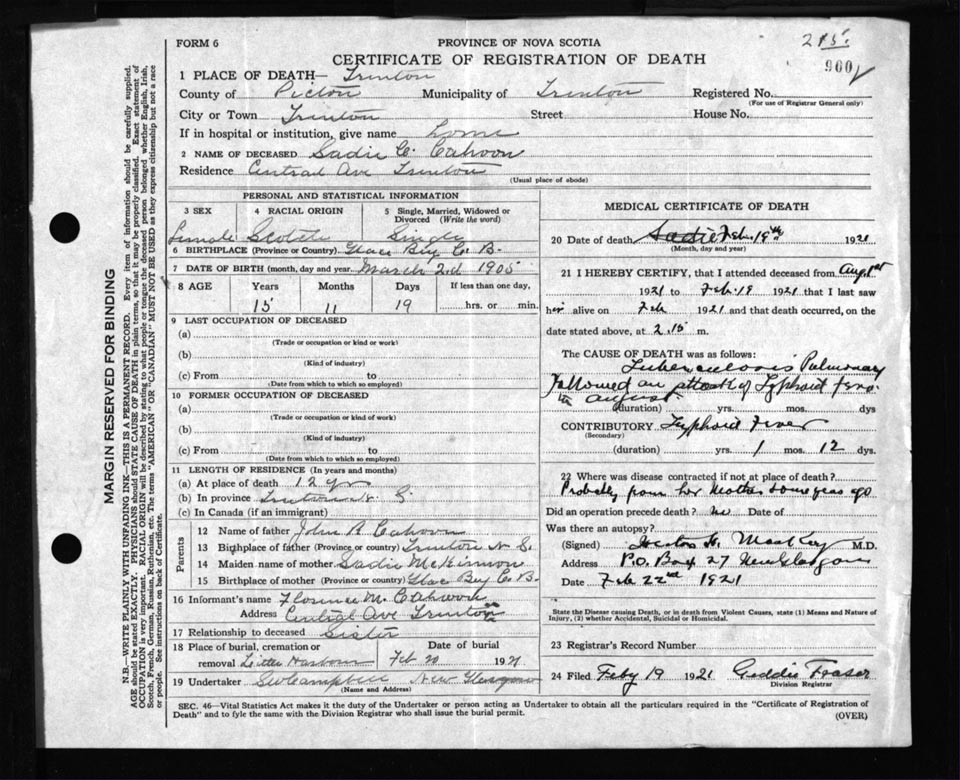 FORM 6
PROVINCE OF NOVA SCOTIA
215.
900
CERTIFICATE OF REGISTRATION OF DEATH
1 PLACE OF DEATH— Trenton
County of Pictou Municipality of Trenton Registered No.
(For use of Registrar General only)
City or Town Trenton Street House No.
If in hospital or institution, give name home
2 NAME OF DECEASED Sadie C. Cahoon
Residence Central Ave Trenton
(Usual place of abode)
PERSONAL AND STATISTICAL INFORMATION
3 SEX 4 RACIAL ORIGIN 5 Single, Married, Widowed or Divorced (Write the word)
female Scotch Single
6 BIRTHPLACE (Province or Country) Glace Bay C. B.
7 DATE OF BIRTH (month, day and year) March 2nd 1905
8 AGE Years Months Days If less than one day,
15 11 19 hrs. or min.
9 LAST OCCUPATION OF DECEASED
(a)
(Trade or occupation or kind or work)
(b)
(Kind of industry)
(c) From to
(Date from which to which so employed)
10 FORMER OCCUPATION OF DECEASED
(a)
(Trade or occupation or kind of work)
(b)
(Kind of industry)
(c) From to
(Date from which to which so employed)
11 LENGTH OF RESIDENCE (In years and months)
(a) At place of death 12 yrs
(b) In province Trenton N. S.
(c) In Canada (if an immigrant)
Parents
12 Name of father John R Cahoon
13 Birthplace of father (Province or country) Trenton N S.
14 Maiden name of mother Sadie McKinnon
15 Birthplace of mother (Province or country) Glace Bay C. B.
16 Informant's name Florence M. Cahoon
Address Central Ave Trenton
17 Relationship to deceased Sister
18 Place of burial, cremation or Date of burial
removal Little Harbour Feb 20 1921
19 Undertaker Campbell New Glasgow
(Name and Address)
MEDICAL CERTIFICATE OF DEATH
20 Date of death Sadie Feb. 19th 1921
(Month, day and year)
21 I HEREBY CERTIFY, that I attended deceased from Aug 1st
1921 to Feb. 19 1921 that I last saw
her alive on Feb 1921 and that death occurred, on the
date stated above, at 2.15 m.
The CAUSE OF DEATH was as follows:
Tuberculosis Pulmonary
followed an attack of Typhoid Fever
in August.
(duration) yrs. mos. dys
CONTRIBUTORY Typhoid Fever
(Secondary)
(duration) yrs. 1 mos. 12 dys.
22 Where was disease contracted if not at place of death?
Probably from her Mother some years ago
Did an operation precede death? no Date of
Was there an autopsy?
(Signed) H. M.D.
Address P.O. Box 27 New Glasgow
Date Feb 22nd 1921
State the Disease causing Death, or in death from Violent Causes, state (1) Means and Nature of
Injury, (2) whether Accidental, Suicidal or Homicidal.
23 Registrar's Record Number
24 Filed Feby 19 1921 Geddie Fraser
Division Registrar
SEC. 46—Vital Statistics Act makes it the duty of the Undertaker or person acting as Undertaker to obtain all the particulars required in the "Certificate of Registration of
Death" and to fyle the same with the Division Registrar who shall issue the burial permit.
(OVER)
MARGIN RESERVED FOR BINDING
N.B.—WRITE PLAINLY WITH UNFADING INK—THIS IS A PERMANENT RECORD. Every item of information should be carefully supplied.
AGE should be stated EXACTLY. PHYSICIANS should STATE CAUSE OF DEATH in plain terms, so that it may be properly classified. Exact statement of
OCCUPATION is very important. RACIAL ORIGIN will be described by stating to what people or tongue the deceased person belonged whether English, Irish,
Scotch, French, German, Russian, Ruthenian, etc. The terms "AMERICAN" OR "CANADIAN" MUST NOT BE USED as they express citizenship but not a race
or people. See instructions on back of Certificate.